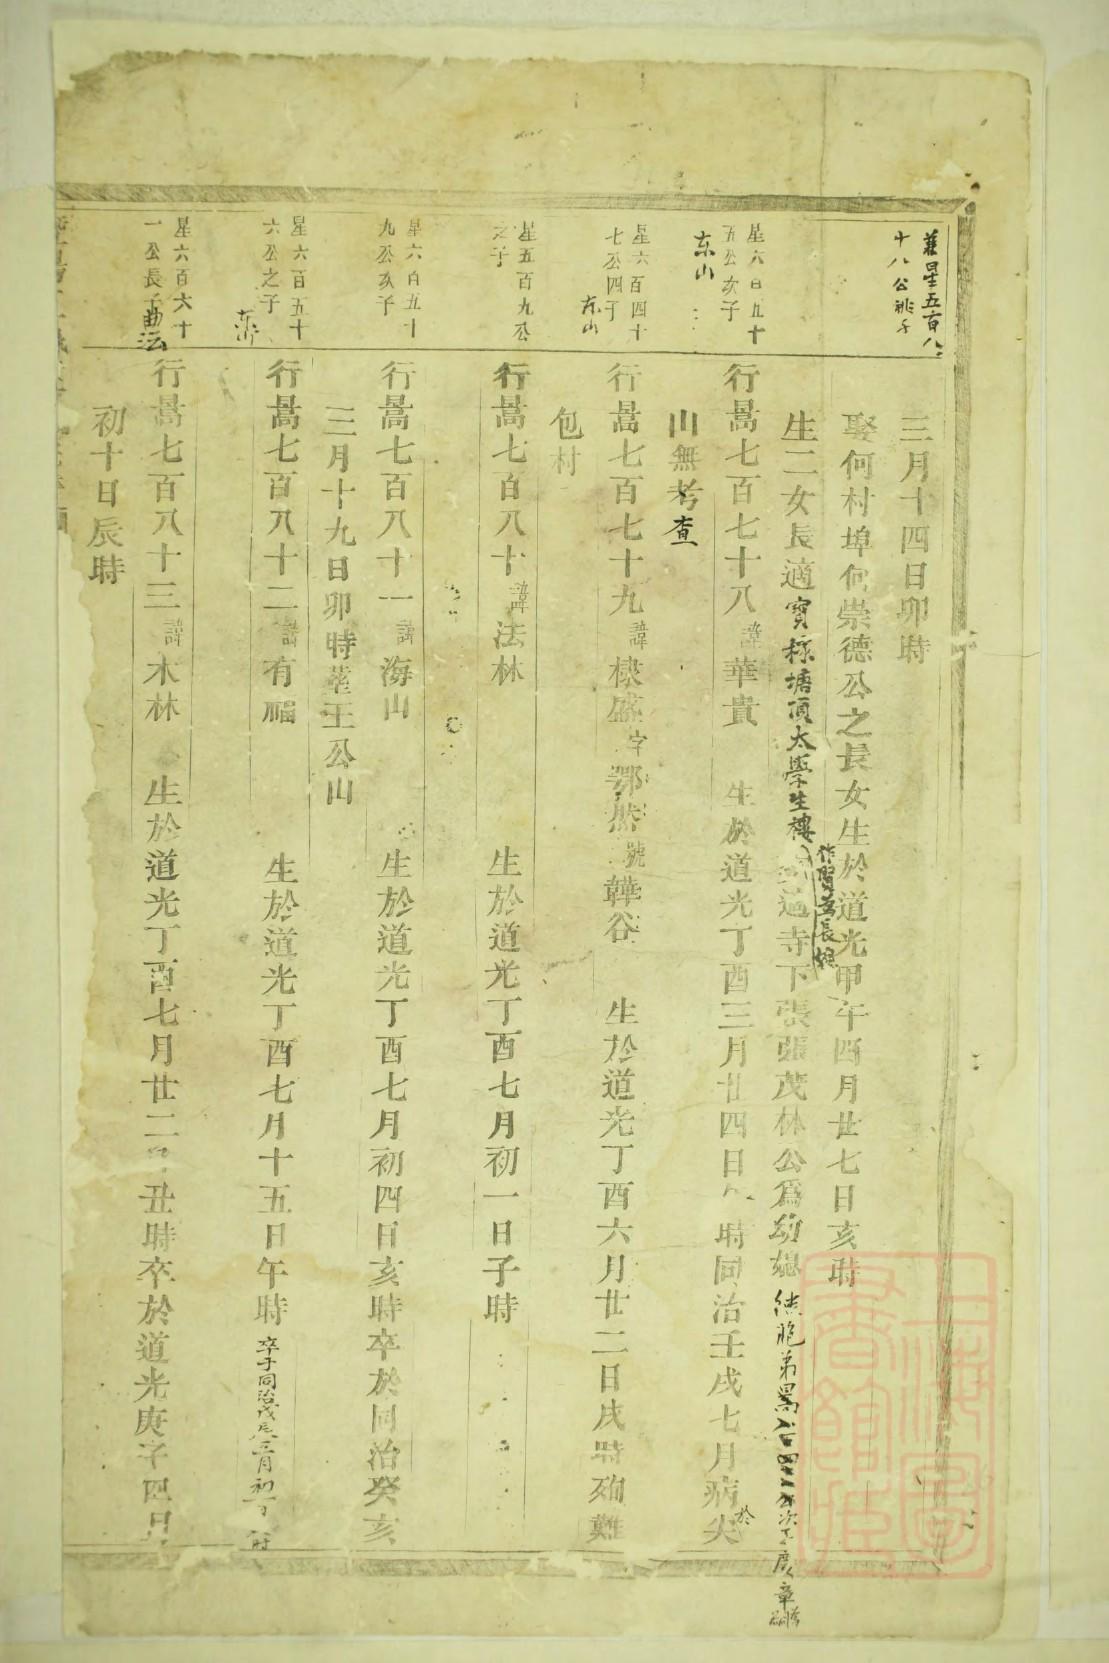 兼星五百八
十八公祧子
三月十四日卯時
娶何村埠何崇德公之長女生於道光甲午四月廿七日亥時
作賢公長媳
生二女長適寶椂塘頂太學生樓適寺下張張茂林公爲幼媳繼胞弟暠八百四十公次子慶章爲嗣
星六百五十
五公次子
东山
行暠七百七十八諱華貴 生於道光丁酉三月廿四日時同治壬戌七月病於尖
山無考查
星六百四十
七公四子
东山
行暠七百七十九諱棣盛字鄂然號韡谷 生於道光丁酉六月廿二日戌時殉難
包村
星五百九公
之子
行暠七百八十諱法林 生於道光丁酉七月初一日子時
星六百五十
九公次子
行暠七百八十一諱海山 生於道光丁酉七月初四日亥時卒於同治癸亥
三月十九日卯時塟王公山
星六百五十
六公之子
行暠七百八十二諱有福 生於道光丁酉七月十五日午時卒于同治戊辰三月初一日時
星六百六十
一公長子
行暠七百八十三諱木林 生於道光丁酉七月廿二日丑時卒於道光庚子四月
初十日辰時
上海圖書館藏